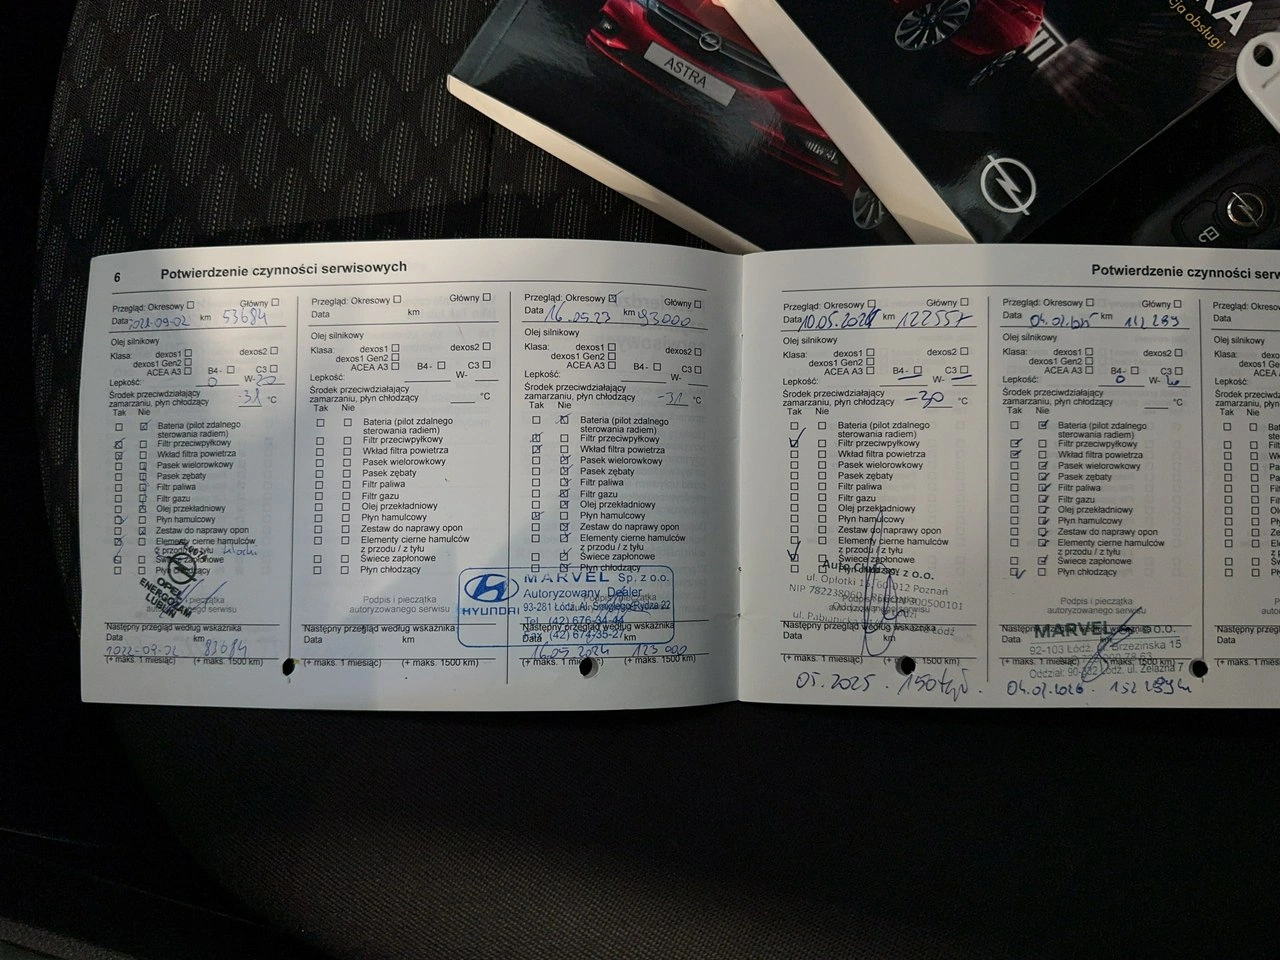 ASTRA
KA
cja obsługi
6 Potwierdzenie czynności serwisowych
Przegląd: Okresowy Główny
Data km 53684
Olej silnikowy
Klasa: dexos1 dexos2
dexos1 Gen2
ACEA A3 B4- C3
Lepkość: 0 W-20
Środek przeciwdziałający
zamarzaniu, płyn chłodzący -31 °C
Tak Nie
Bateria (pilot zdalnego
sterowania radiem)
Filtr przeciwpyłkowy
Wkład filtra powietrza
Pasek wielorowkowy
Pasek zębaty
Filtr paliwa
Filtr gazu
Olej przekładniowy
Płyn hamulcowy
Zestaw do naprawy opon
Elementy cierne hamulców
z przodu / z tyłu
Świece zapłonowe
Płyn chłodzący
OPEL
ENERGOZAM
LUBLIN
Podpis i pieczątka
autoryzowanego serwisu
Następny przegląd według wskaźnika
Data km
2022-09-02 83684
(+ maks. 1 miesiąc) (+ maks. 1500 km)
Przegląd: Okresowy Główny
Data km
Olej silnikowy
Klasa: dexos1 dexos2
dexos1 Gen2
ACEA A3 B4- C3
Lepkość: W-
Środek przeciwdziałający
zamarzaniu, płyn chłodzący °C
Tak Nie
Bateria (pilot zdalnego
sterowania radiem)
Filtr przeciwpyłkowy
Wkład filtra powietrza
Pasek wielorowkowy
Pasek zębaty
Filtr paliwa
Filtr gazu
Olej przekładniowy
Płyn hamulcowy
Zestaw do naprawy opon
Elementy cierne hamulców
z przodu / z tyłu
Świece zapłonowe
Płyn chłodzący
Podpis i pieczątka
autoryzowanego serwisu
Następny przegląd według wskaźnika
Data km
(+ maks. 1 miesiąc) (+ maks. 1500 km)
Przegląd: Okresowy Główny
Data 16.05.23 km 93000
Olej silnikowy
Klasa: dexos1 dexos2
dexos1 Gen2
ACEA A3 B4- C3
Lepkość: W-
Środek przeciwdziałający
zamarzaniu, płyn chłodzący -31 °C
Tak Nie
Bateria (pilot zdalnego
sterowania radiem)
Filtr przeciwpyłkowy
Wkład filtra powietrza
Pasek wielorowkowy
Pasek zębaty
Filtr paliwa
Filtr gazu
Olej przekładniowy
Płyn hamulcowy
Zestaw do naprawy opon
Elementy cierne hamulców
z przodu / z tyłu
Świece zapłonowe
Płyn chłodzący
HYUNDAI
MARVEL Sp. z o.o.
Autoryzowany Dealer
93-281 Łódź, Al. Śmigłego-Rydza 22
Tel. (42) 676-34-44
Fax (42) 674-35-27
Następny przegląd według wskaźnika
Data km
16.05.2024 123 000
(+ maks. 1 miesiąc) (+ maks. 1500 km)
Potwierdzenie czynności serw
Przegląd: Okresowy Główny
Data 10.05.2024 km 122557
Olej silnikowy
Klasa: dexos1 dexos2
dexos1 Gen2
ACEA A3 B4- C3
Lepkość: W-
Środek przeciwdziałający
zamarzaniu, płyn chłodzący -30 °C
Tak Nie
Bateria (pilot zdalnego
sterowania radiem)
Filtr przeciwpyłkowy
Wkład filtra powietrza
Pasek wielorowkowy
Pasek zębaty
Filtr paliwa
Filtr gazu
Olej przekładniowy
Płyn hamulcowy
Zestaw do naprawy opon
Elementy cierne hamulców
z przodu / z tyłu
Świece zapłonowe
Płyn chłodzący
z o.o.
ul. Opłotki Poznań
Podpis i pieczątka
autoryzowanego serwisu
Następny przegląd według wskaźnika
Data km
(+ maks. 1 miesiąc) (+ maks. 1500 km)
05.2025 . 150 tyś .
Przegląd: Okresowy Główny
Data km
Olej silnikowy
Klasa: dexos1 dexos2
dexos1 Gen2
ACEA A3 B4- C3
Lepkość: 0 W-
Środek przeciwdziałający
zamarzaniu, płyn chłodzący °C
Tak Nie
Bateria (pilot zdalnego
sterowania radiem)
Filtr przeciwpyłkowy
Wkład filtra powietrza
Pasek wielorowkowy
Pasek zębaty
Filtr paliwa
Filtr gazu
Olej przekładniowy
Płyn hamulcowy
Zestaw do naprawy opon
Elementy cierne hamulców
z przodu / z tyłu
Świece zapłonowe
Płyn chłodzący
Podpis i pieczątka
autoryzowanego serwisu
MARVEL o.o.
92-103 Łódź, ul. Brzezińska 15
Oddział: ul. Żelazna 7
Następny przegląd według wskaźnika
Data km
(+ maks. 1 miesiąc) (+ maks. 1500 km)
Przegląd: Okr
Data
Olej silnikowy
Klasa:
Lepkość:
Środek przeciwd
zamarzaniu, pły
Tak Nie